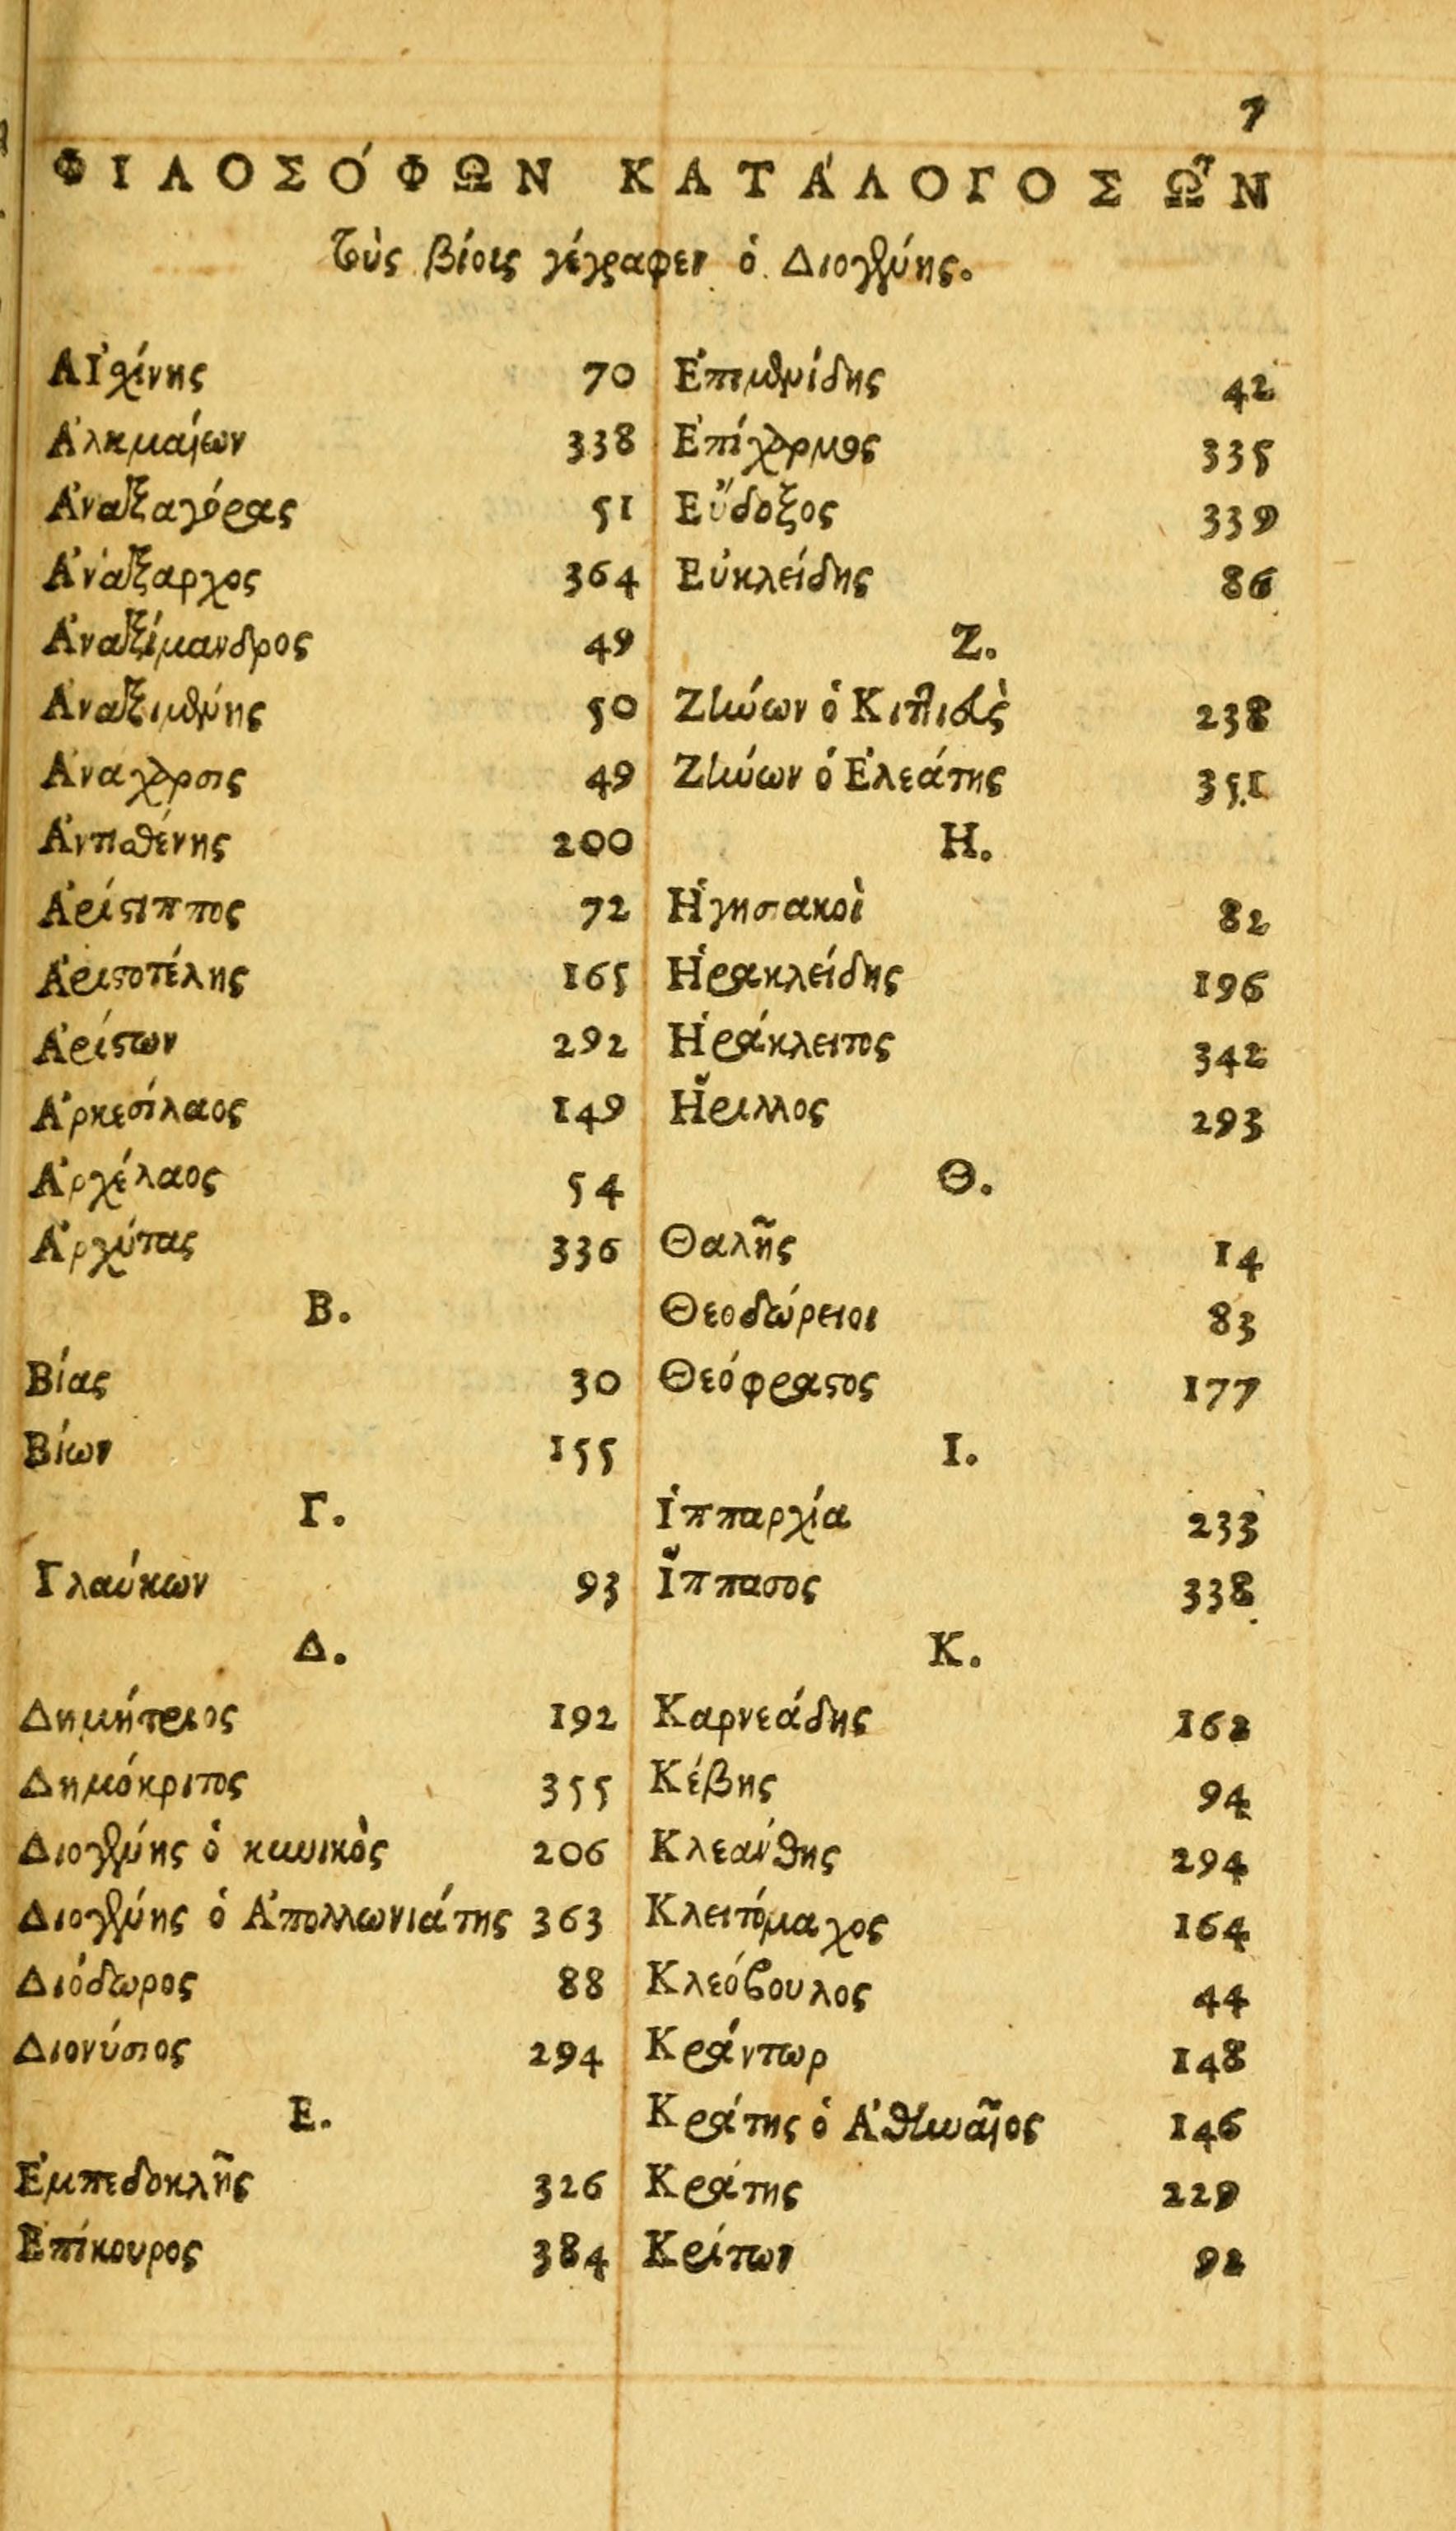 7
ΦΙΛΟΣΌΦΩΝ ΚΑΤΆΛΟΓΟΣ ΩΝ͂
τοὺς βίους γέγραφεν ὁ Διογένης.
Αἰσχίνης 70
Ἀλκμαίων 338
Ἀναξαγόρας 51
Ἀνάξαρχος 364
Ἀναξίμανδρος 49
Ἀναξιμένης 50
Ἀνάχαρσις 49
Ἀντισθένης 200
Ἀρίστιππος 72
Ἀριστοτέλης 165
Ἀρίστων 292
Ἀρκεσίλαος 149
Ἀρχέλαος 54
Ἀρχύτας 336
Β.
Βίας 30
Βίων 155
Γ.
Γλαύκων 93
Δ.
Δημήτριος 192
Δημόκριτος 355
Διογένης ὁ κυνικὸς 206
Διογένης ὁ Ἀπολλωνιάτης 363
Διόδωρος 88
Διονύσιος 294
Ε.
Ἐμπεδοκλῆς 326
Ἐπίκουρος 384
Ἐπιμενίδης 42
Ἐπίχαρμος 335
Εὔδοξος 339
Εὐκλείδης 86
Ζ.
Ζήνων ὁ Κιτιεὺς 238
Ζήνων ὁ Ἐλεάτης 351
Η.
Ἡγησιακοὶ 82
Ἡρακλείδης 196
Ἡράκλειτος 342
Ἥριλλος 293
Θ.
Θαλῆς 14
Θεοδώρειοι 83
Θεόφραστος 177
Ι.
Ἱππαρχία 233
Ἵππασος 338
Κ.
Καρνεάδης 162
Κέβης 94
Κλεάνθης 294
Κλειτόμαχος 164
Κλεόβουλος 44
Κράντωρ 148
Κράτης ὁ Ἀθηναῖος 146
Κράτης 229
Κρίτων 92